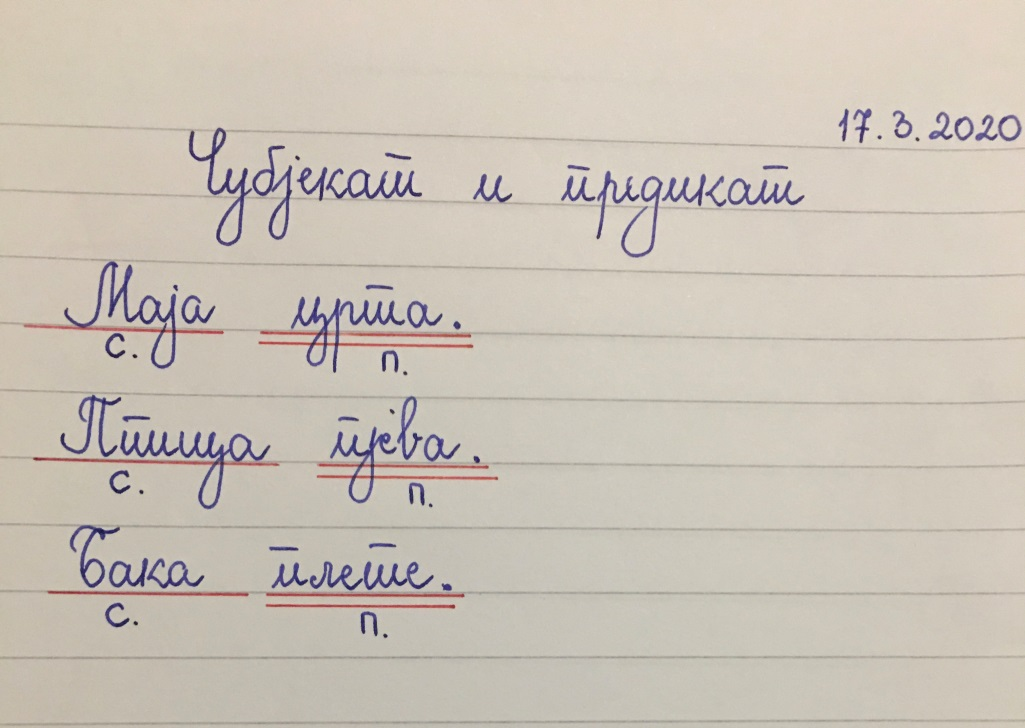 17.3.2020
Субјекат и предикат
Маја црта.
с. п.
Птица пјева.
с. п.
Бака плете.
с. п.